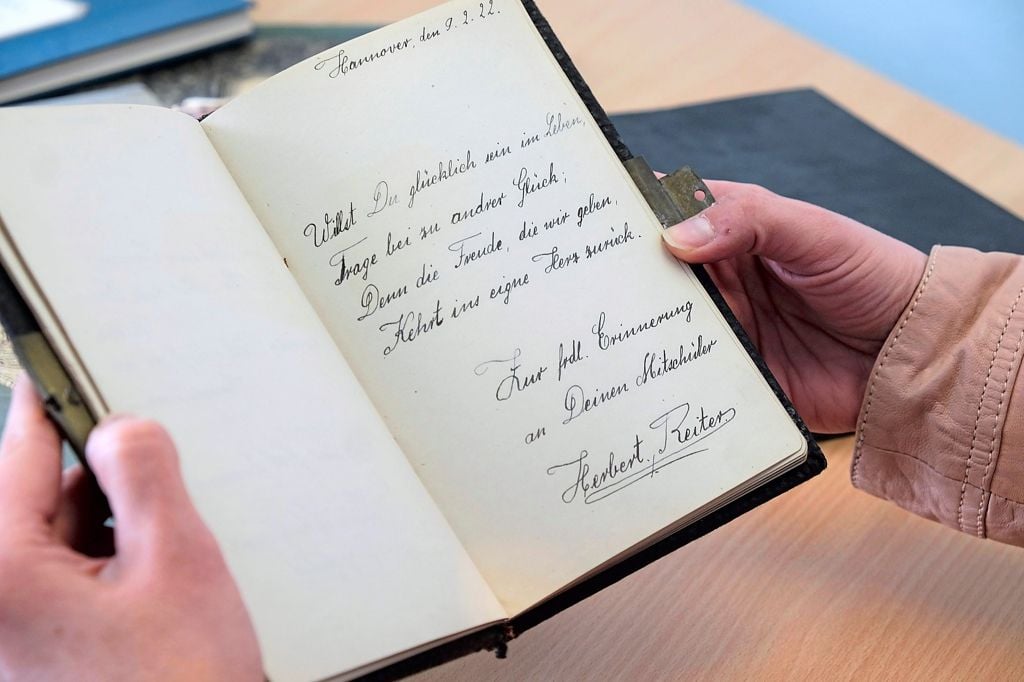 Hannover, den 9.2.22.
Willst Du glücklich sein im Leben,
Trage bei zu andrer Glück;
Denn die Freude, die wir geben,
Kehrt ins eigne Herz zurück.
Zur frdl. Erinnerung
an Deinen Mitschüler
Herbert Reiter.